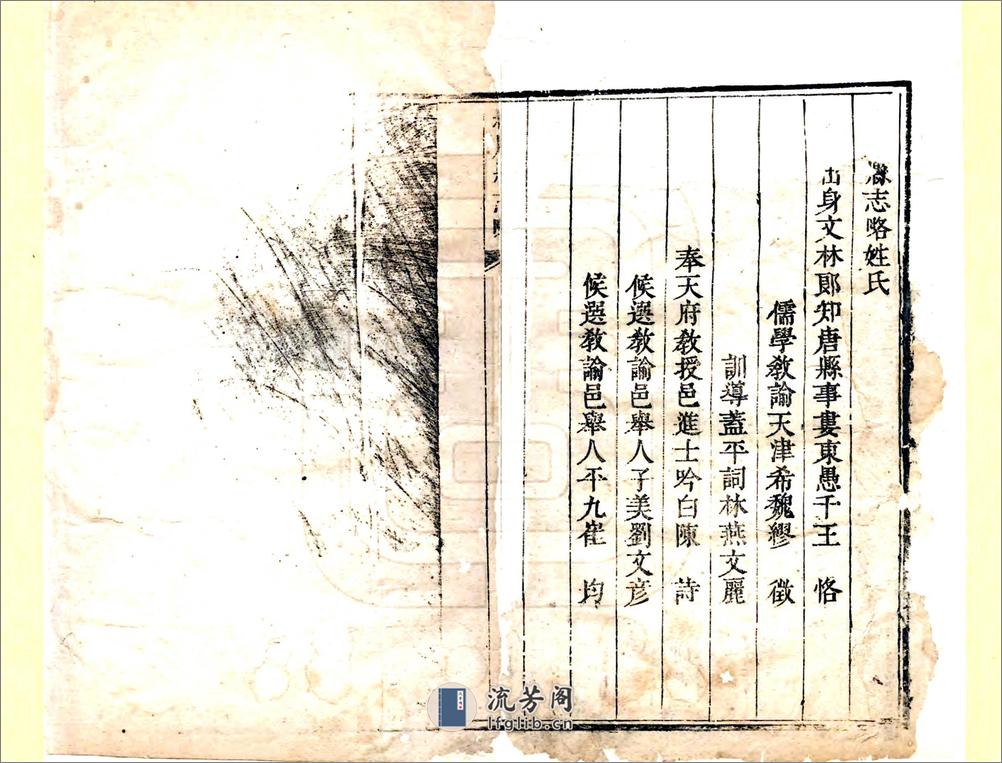 志略姓氏
出身文林郎知唐縣事婁東愚千王 恪
儒學教諭天津希魏繆 徵
訓導蓋平詞林燕文麗
奉天府教授邑進士吟白陳 詩
候選教諭邑舉人子美劉文彥
候選教諭邑舉人平九崔 均
流芳阁
lfglib.cn